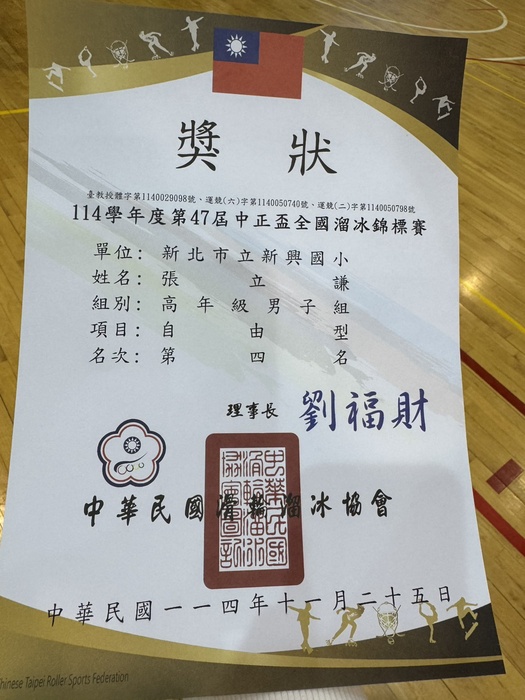 獎 狀
臺教授體字第1140029098號、運競(六)字第1140050740號、運競(二)字第1140050798號
114學年度第47屆中正盃全國溜冰錦標賽
單位：新北市立新興國小
姓名：張立謙
組別：高年級男子組
項目：自由型
名次：第四名
理事長 劉福財
中華民國滑輪溜冰協會
中華民國一一四年十一月二十五日
Chinese Taipei Roller Sports Federation